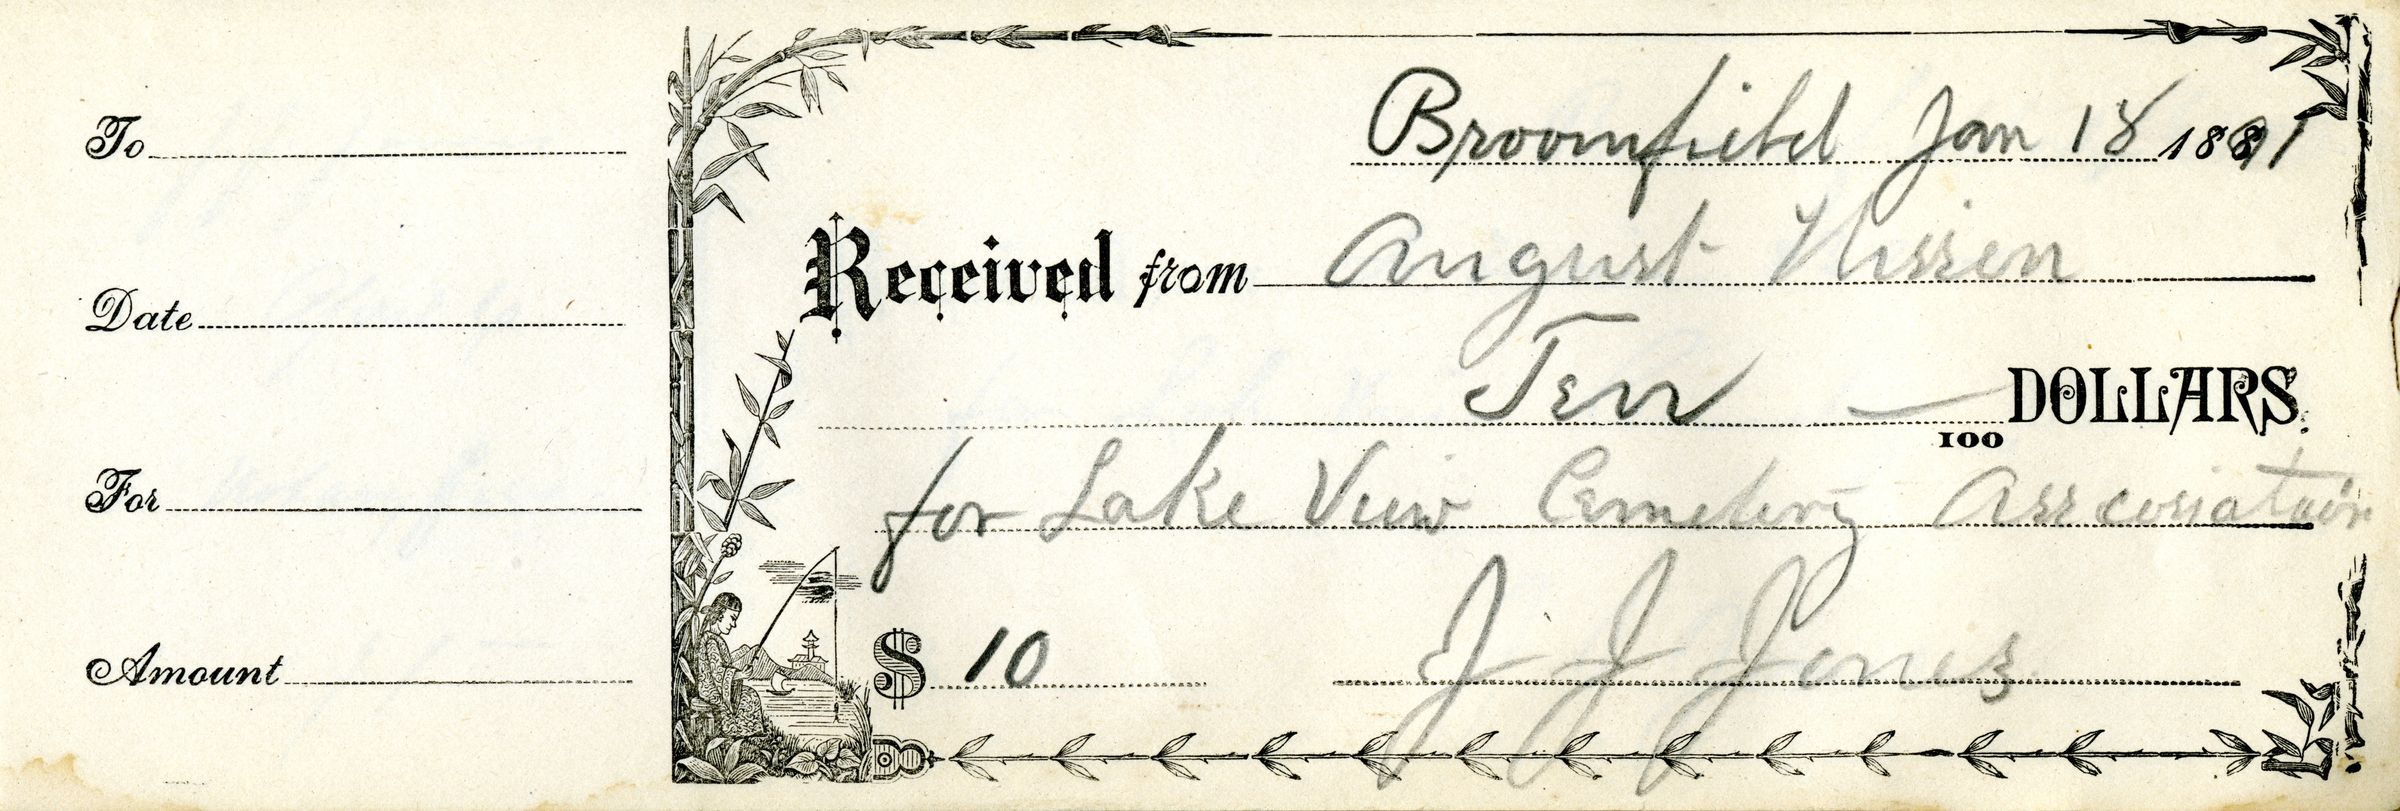 To
Date
For
Amount
Broomfield Jan 18 1891
Received from August Nissen
Ten — 100 DOLLARS.
for Lake View Cemetery Asscosiation
$ 10 J J Jones